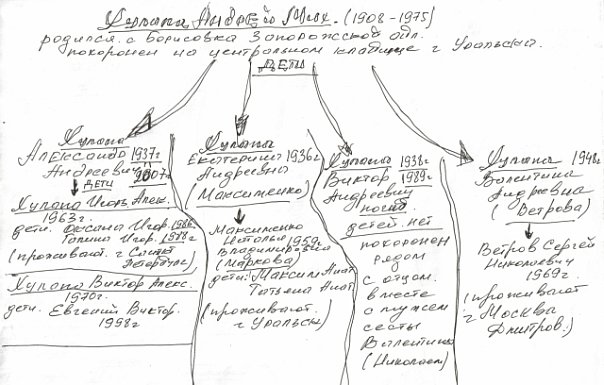 Хупана Андрей Мих. (1908-1975)
родился с. Борисовка Запорожской обл.
похоронен на центральном кладбище г. Уральска.
ДЕТИ
Хупана 1937г
Александр
Андреевич 2007г
дети
Хупана Игорь Алекс.
1963г.
дети. Оксана Игор. 1986
Галина Игор. 1988г
(проживают. г Санкт
Петербург)
Хупана Виктор Алекс.
1970г.
дети. Евгений Виктор.
1998г
Хупана
Екатерина 1936г
Андреевна
(Максименко)
Максименко
Наталья 1959г.
Владимировна
(Маркова)
дети: Максим Анат
Татьяна Анат
(проживают.
г Уральск)
Хупана 1938г
Виктор 1989г.
Андреевич
погиб
детей нет
похоронен
рядом
с отцом.
вместе
с мужем
сестры
Валентины
(Николаем)
Хупана 1948г
Валентина
Андреевна
(Ветрова)
Ветров Сергей
Николаевич
1969г.
(проживают
г Москва
Дмитров.)